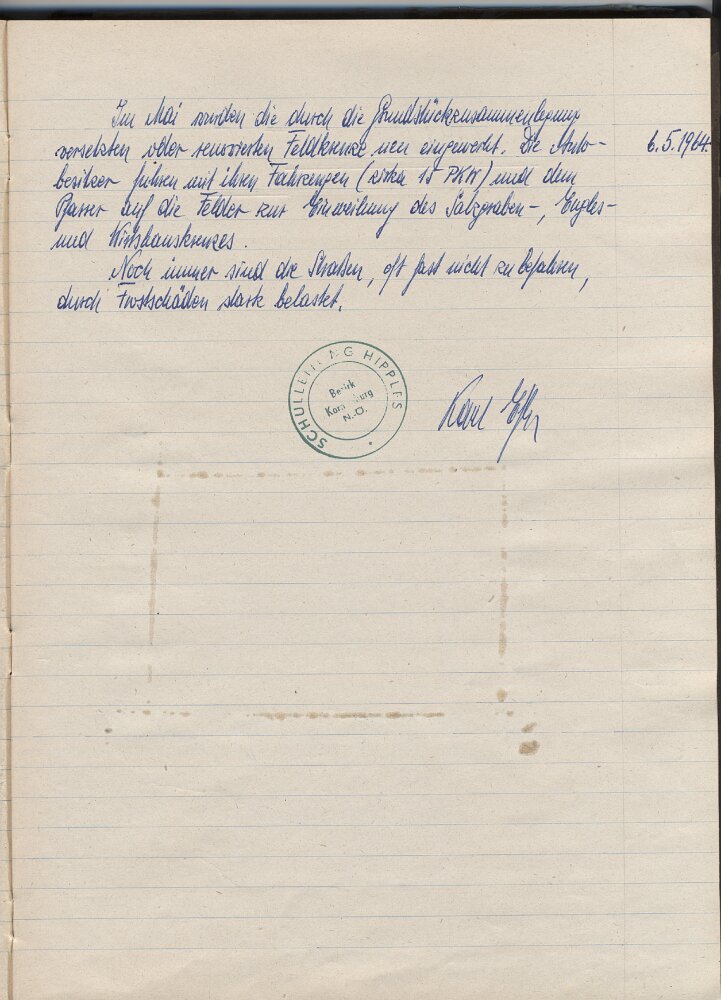 Im Mai wurden die durch die Grundstückzusammenlegung
versetzten oder renovierten Feldkreuze neu eingeweiht. Die Auto-
6.5.1964.
besitzer führen mit ihren Fahrzeugen (zirka 15 PKW) und dem
Pfarrer auf die Felder zur Einweihung des Salzgraben-,
und Wirtshauskreuzes.
Noch immer sind die Straßen, oft fast nicht zu befahren,
durch Frostschäden stark belastet.
SCHULLEITUNG HIPPLES
Bezirk
Korneuburg
N.-Ö.
Karl